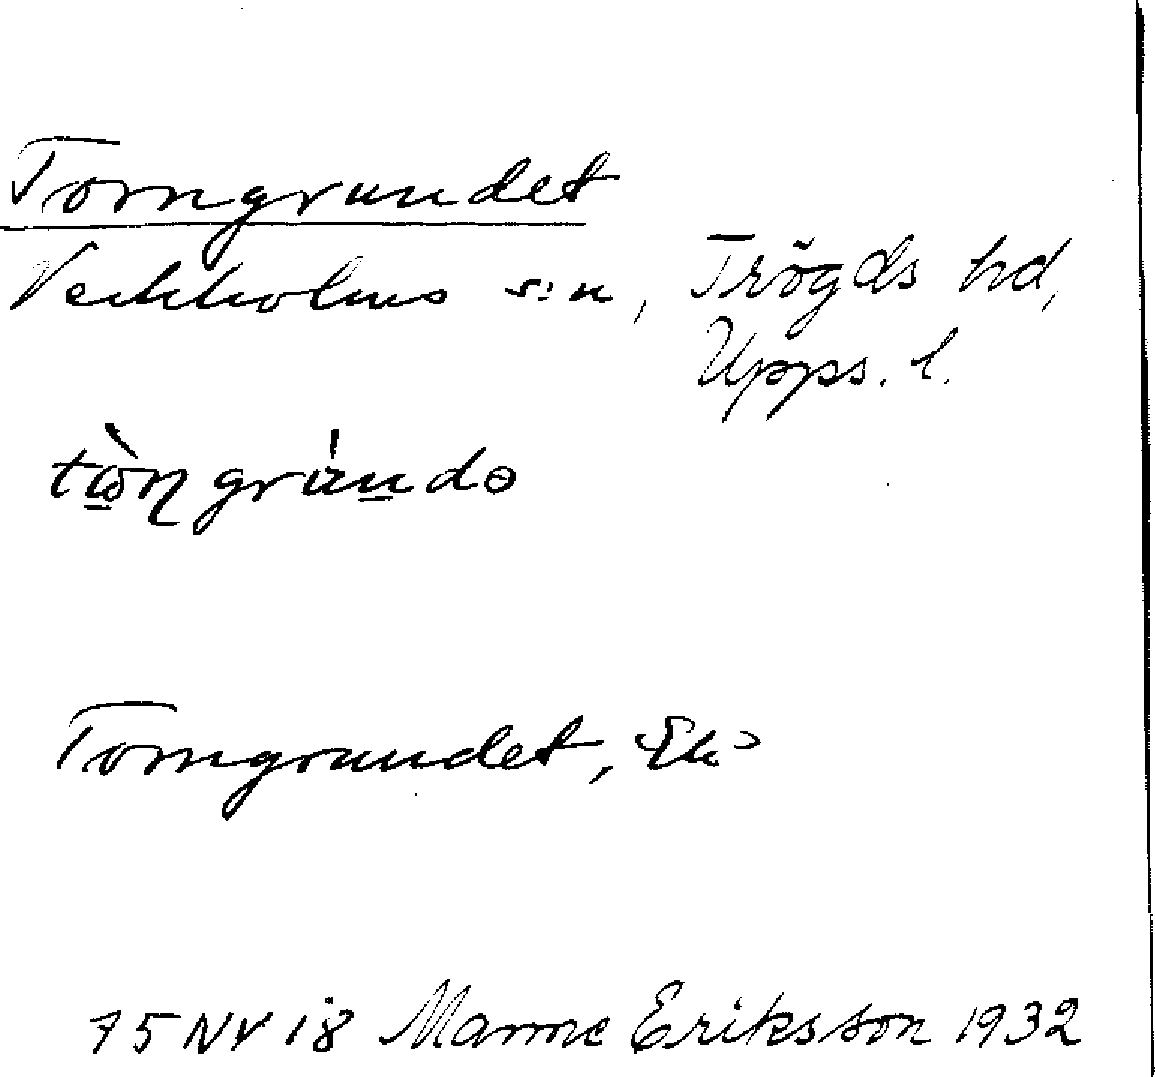 Torngrundet
Veckholms s:n, Trögds hd,
Upps. l.
Torngrundet, Ek
75 NV 18 Manne Eriksson 1932